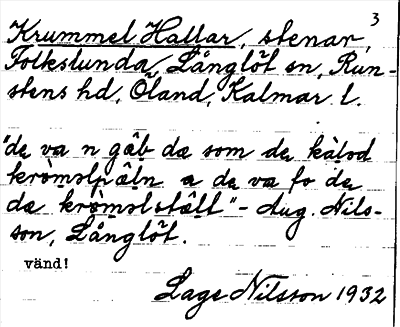 3
Krummel Hallar, stenar,
Folkslunda, Långlöt sn, Run-
stens hd, Öland, Kalmar l.
"de va n gâb dæ som de kàlod
kròmolpâln a de va fo de
dæ kròmolstâlt" - Aug. Nils-
son, Långlöt.
vänd!
Lage Nilsson 1932